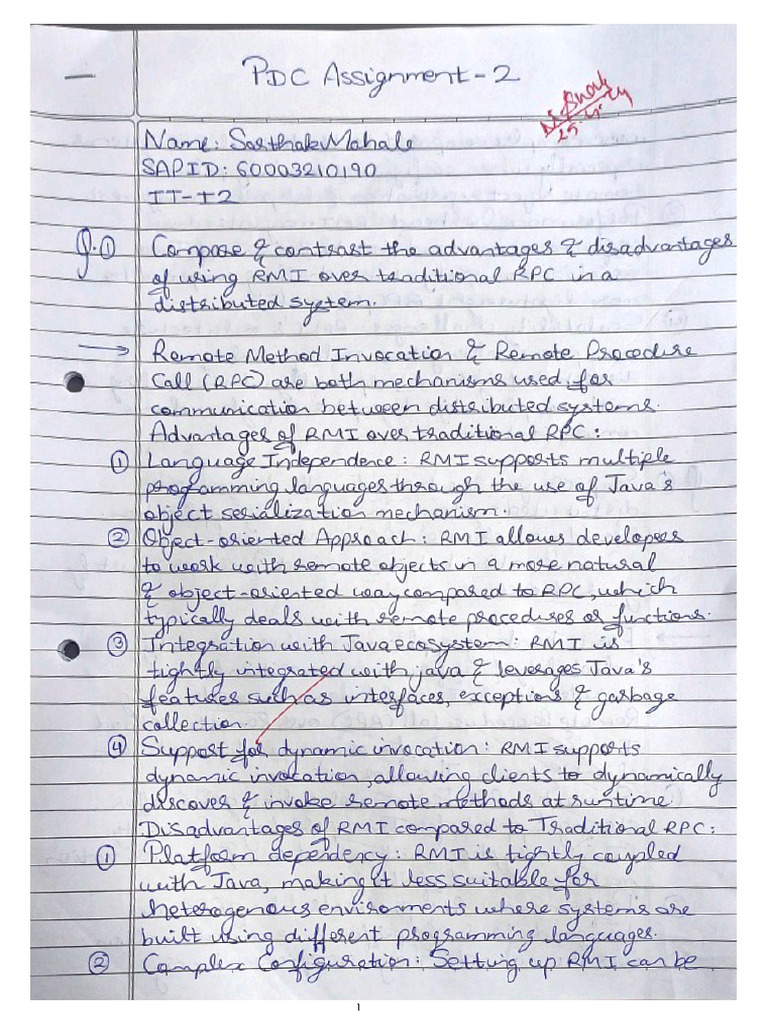 PDC Assignment-2
Name: Sarthak Mahale
SAPID: 60003210190
IT-I2
Q.① Compose & contrast the advantages & disadvantages
of using RMI over traditional RPC in a
distributed system.
→ Remote Method Invocation & Remote Procedure
Call (RPC) are both mechanisms used for
communication between distributed systems.
Advantages of RMI over traditional RPC:
① Language Independence: RMI supports multiple
programming languages through the use of Java's
object serialization mechanism.
② Object-oriented Approach: RMI allows developers
to work with remote objects in a more natural
& object-oriented way compared to RPC, which
typically deals with remote procedures or functions.
③ Integration with Java ecosystem: RMI is
tightly integrated with java & leverages Java's
features such as interfaces, exceptions & garbage
collection.
④ Support for dynamic invocation: RMI supports
dynamic invocation, allowing clients to dynamically
discover & invoke remote methods at runtime
Disadvantages of RMI compared to Traditional RPC:
① Platform dependency: RMI is tightly coupled
with Java, making it less suitable for
heterogenous environments where systems are
built using different programming languages.
② Complex Configuration: Setting up RMI can be
1